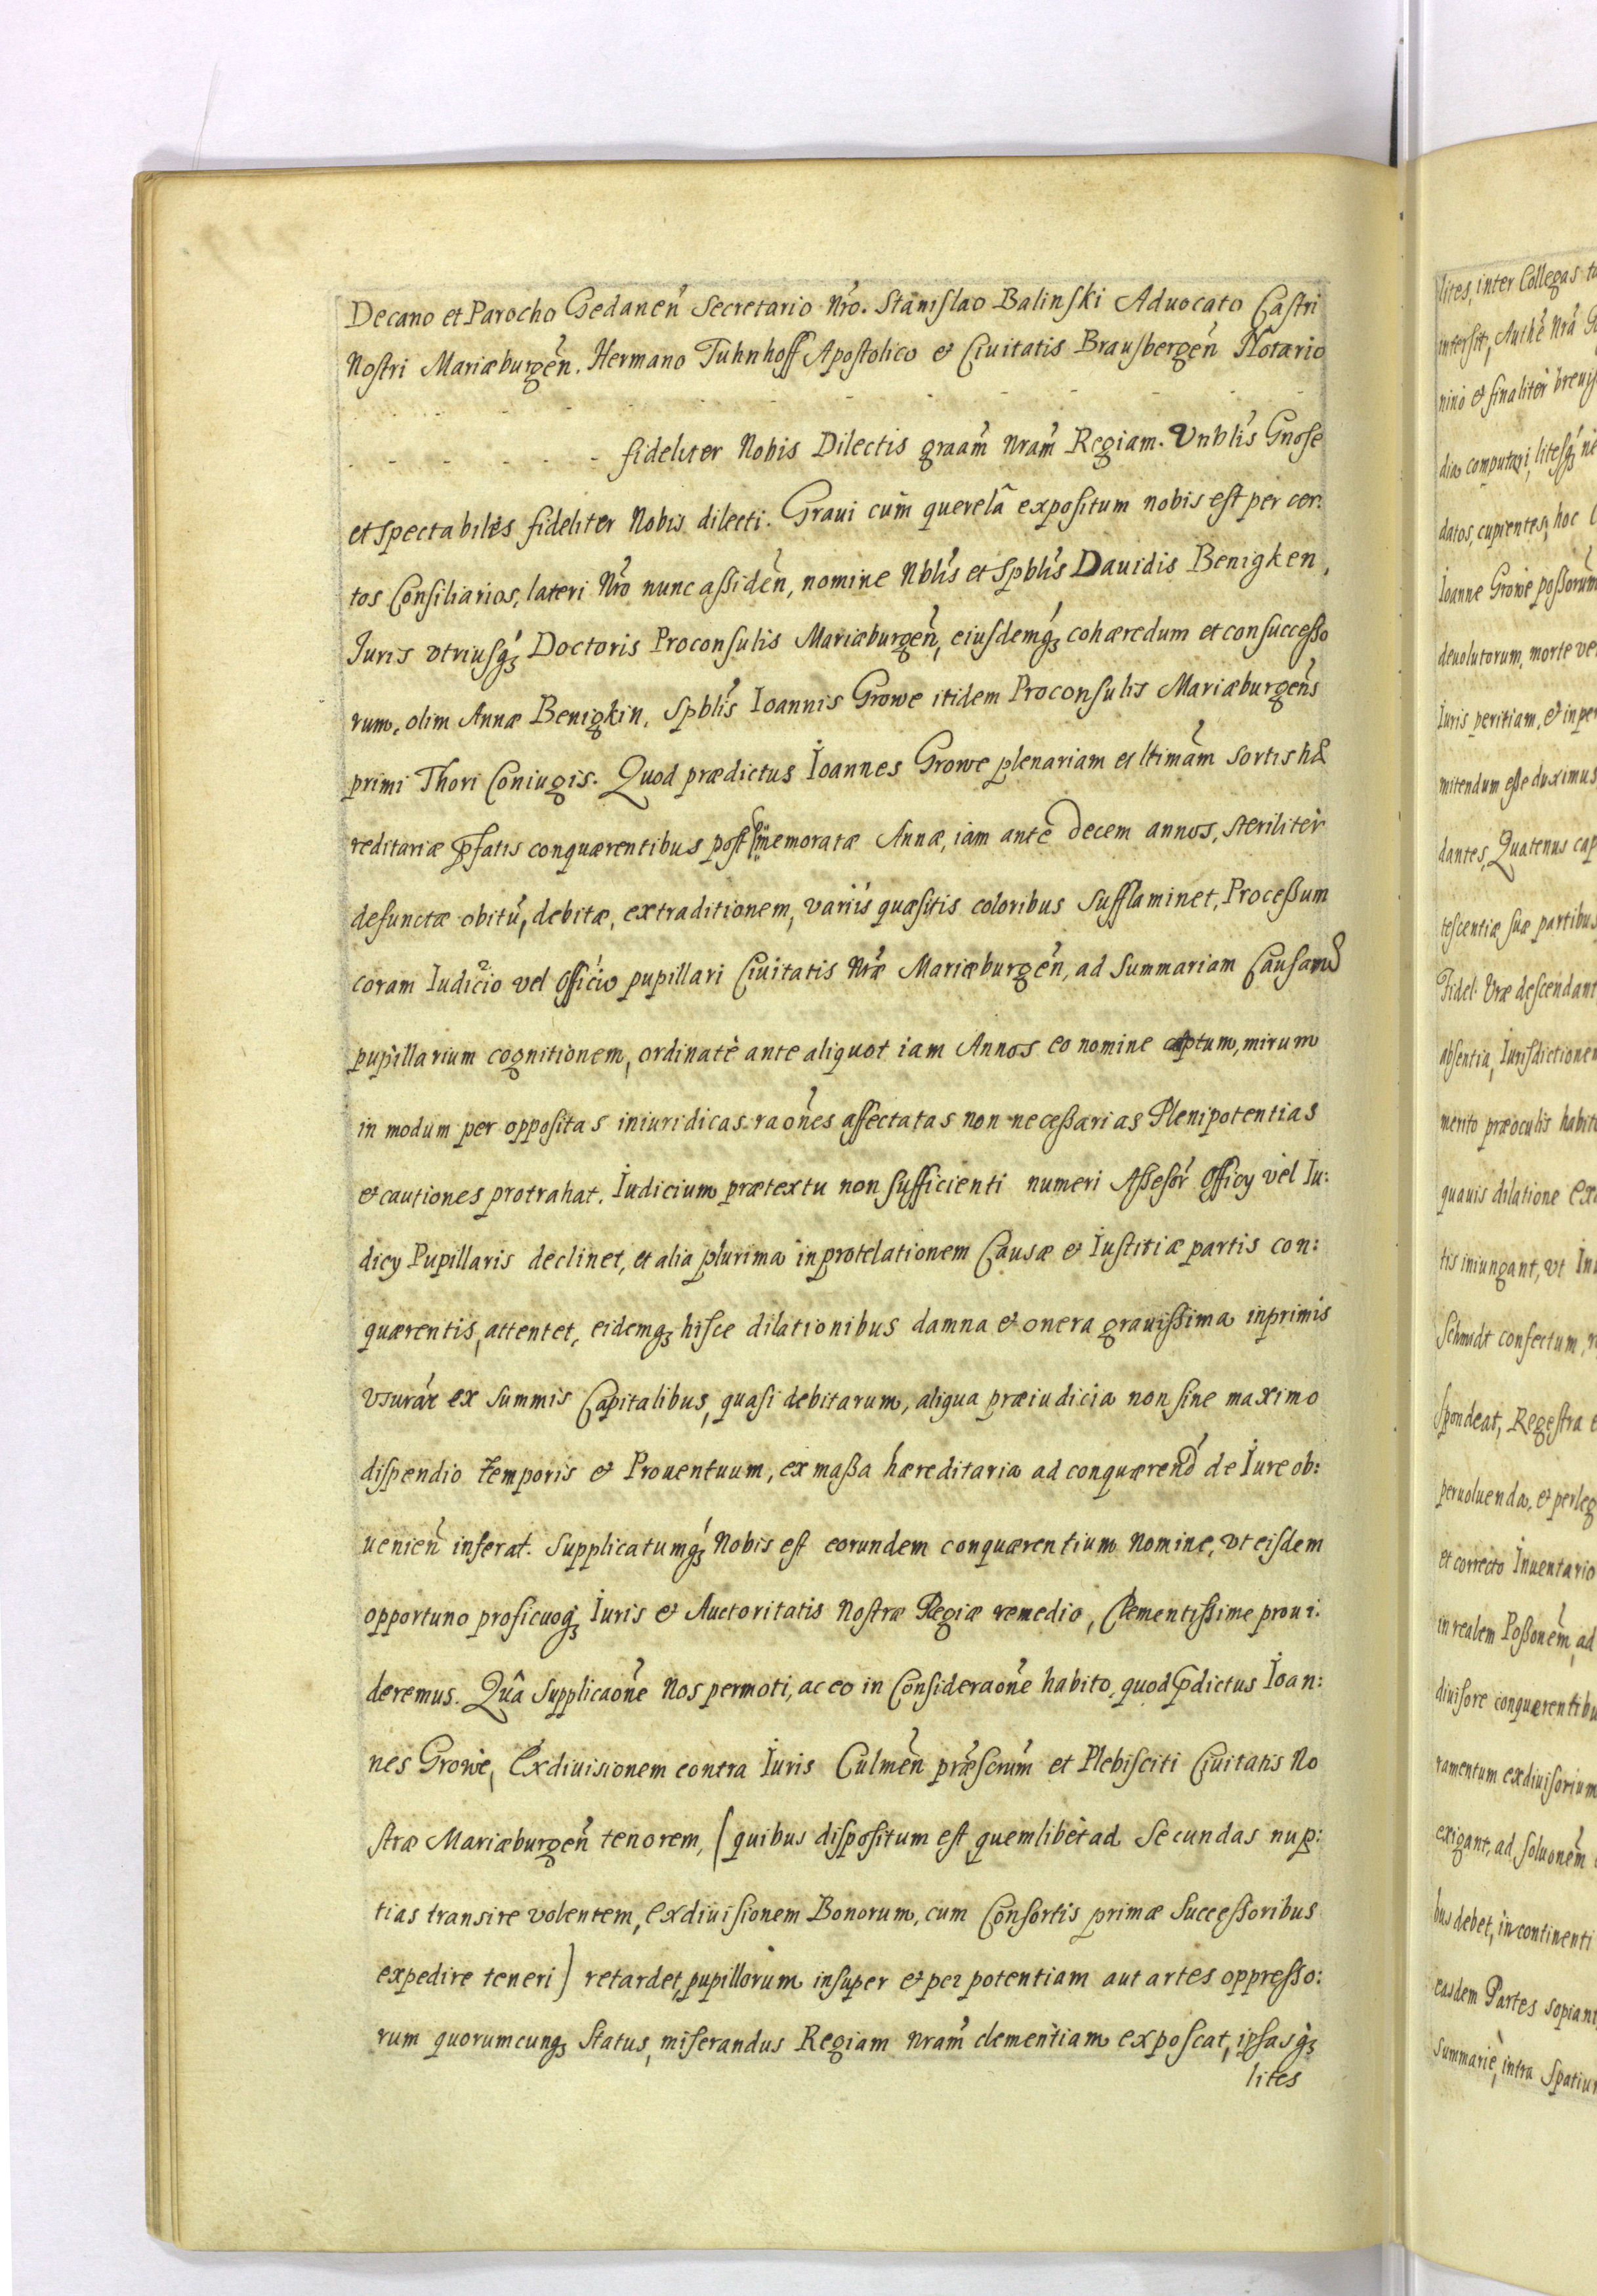 Decano et Parocho Gedanen̉ Secretario Nro. Stanislao Balinski Aduocato Castri
Nostri Mariæburgen̉. Hermano Tuhnhoff Apostolico et Ciuitatis Brausbergen̉ Notario
- - - - - - - - - - - -
- - - - - - fideliter Nobis Dilectis graam̉ nram̉ Regiam. Vnblis Gnose
et spectabiles fideliter Nobis dilecti. Graui cum querelâ expositum nobis est per cer:
tos Consiliarios, lateri Nro nunc assiden̉, nomine Nblis et Spblis Dauidis Benigken,
Iuris vtriusq́ꝫ Doctoris Proconsulis Mariæburgen̉, eiusdemq́ꝫ cohæredum et consuccesso
rum, olim Annæ Benigkin, Spblis Ioannis Growe itidem Proconsulis Mariæburgen̉s
primi Thori Coniugis. Quod prædictus Ioannes Growe plenariam et ltimam̉ sortis hæ
reditariæ p̱fatis conquærentibus post memoratæ Annæ, iam antè decem annos, steriliter
defunctæ obitū, debitæ, extraditionem, variis quæsitis coloribus Sufflaminet, Processum
coram Iudicio vel Officio pupillari Ciuitatis Nræ Mariæburgen̉, ad Summariam Causarum
pupillarium cognitionem, ordinatè ante aliquot iam Annos eo nomine captum, mirum
in modum per oppositas iniuridicas raones affectatas non necessarias Plenipotentias
et cautiones protrahat. Iudicium prætextu non sufficienti numeri Assesor̉ Officy vel Iu:
dicy Pupillaris declinet, et alia plurima in protelationem Causæ et Iustitiæ partis con:
quærentis, attentet, eidemqꝫ hisce dilationibus damna et onera grauissima inprimis
vsurar̉ ex summis Capitalibus, quasi debitarum, aliqua præiudicia non sine maximo
dispendio temporis et Prouentuum, ex massa hæreditaria ad conquærend́ de Iure ob:
uenien̉ inferat. Supplicatumq́ꝫ Nobis est eorundem conquærentium Nomine, vt eisdem
opportuno proficuoqꝫ Iuris et Auctoritatis Nostræ Regiæ remedio, Clementissime proui:
deremus. Quâ Supplicaone Nos permoti, ac eo in Consideraone habito, quod p̱dictus Ioan:
nes Growe, Exdiuisionem contra Iuris Culmen̉ præscrum̉ et Plebisciti Ciuitatis No
stræ Mariæburgen̉ tenorem, (quibus dispositum est quemlibet ad Secundas nup:
tias transire volentem, exdiuisionem Bonorum, cum Consortis primæ Successoribus
expedire teneri) retardet, pupillorum insuper et per potentiam aut artes oppresso:
rum quorumcunqꝫ Status, miserandus Regiam Nram̉ clementiam exposcat, ipsasq́ꝫ
lites
lites, inter Collegas
intersit, Authe Nra
nino et finaliter breuis
dia computari, litesq́ꝫ
datos, cupientes, hoc
Ioanne Growe possorum
deuolutorum, morte
Iuris peritiam, et in
mitendum esse duximus
dantes, Quatenus cap
tescentiæ suæ partibus
Fidel. Vræ descendant
absentia, Iurisdictionem
merito præoculis habit
quauis dilatione
tis iniungant, vt
Schmidt confectum,
spondeat, Regestra
peruoluenda, et perleg
et correcto Inuentario
in realem Possonem̉, ad
diuisore conquærentibu
ramentum exdiuisorium
exigant, ad soluonem̉
bus debet, in continenti
easdem Partes sopian
Summarie, intra Spatiu